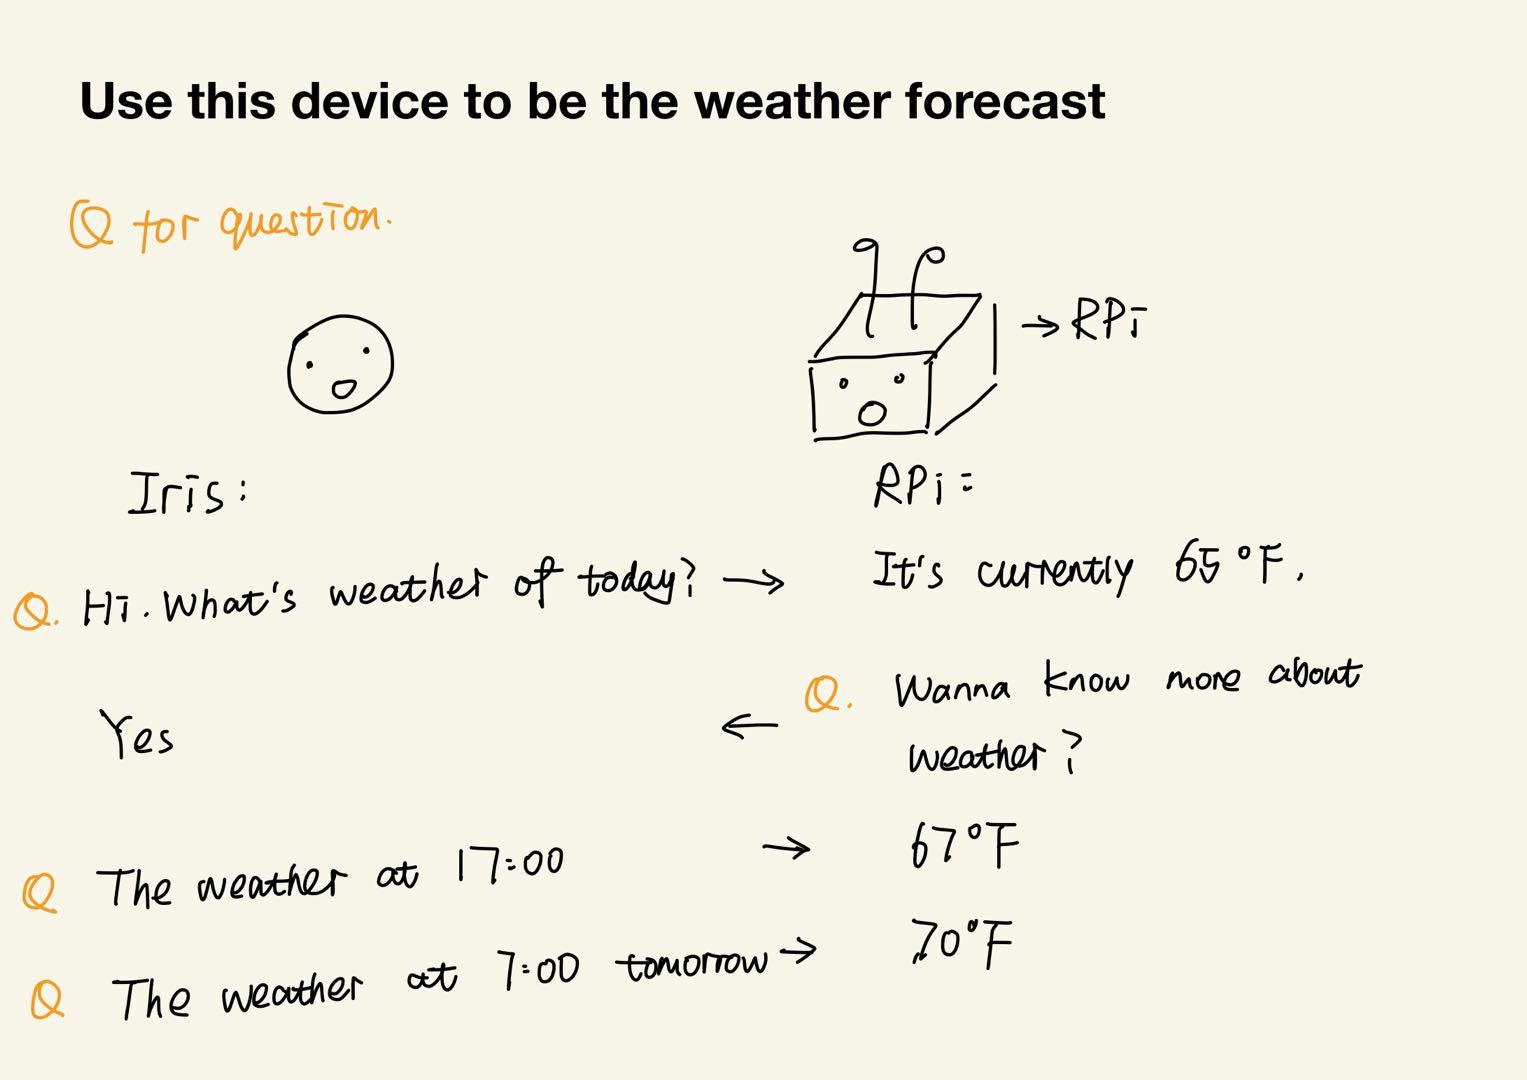 Use this device to be the weather forecast
Q for question.
→ RPi
Iris:
RPi:
Q. Hi. What's weather of today? →
It's currently 65°F.
Q. Wanna know more about
weather?
Yes ←
Q The weather at 17:00 → 67°F
Q The weather at 7:00 tomorrow → 70°F